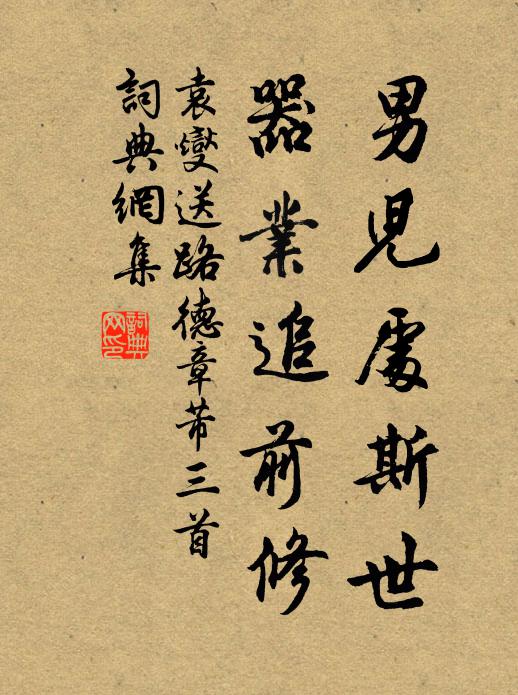 男兒處斯世
器業追前修
袁燮送路德章芾三首
詞典網集
詞典
网印